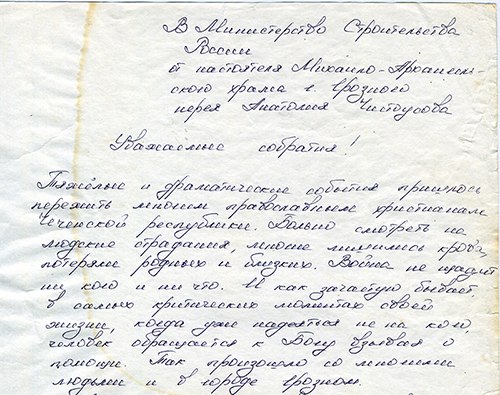 В Министерство Строительства
России
от настоятеля Михаило-Архангель-
ского храма г. Грозного
иерея Анатолия Чистоусова
Уважаемые собратия!
Тяжёлые и драматические события пришлось
пережить многим православным христианам
Чеченской республики. Больно смотреть на
людские страдания, многие лишились крова,
потеряли родных и близких. Война не щадит
ни кого и ни что. И как зачастую бывает,
в самых критических моментах своей
жизни, когда уже надеяться не на кого,
человек обращается к Богу взывая о
помощи. Так произошло со многими
людьми и в городе Грозном.